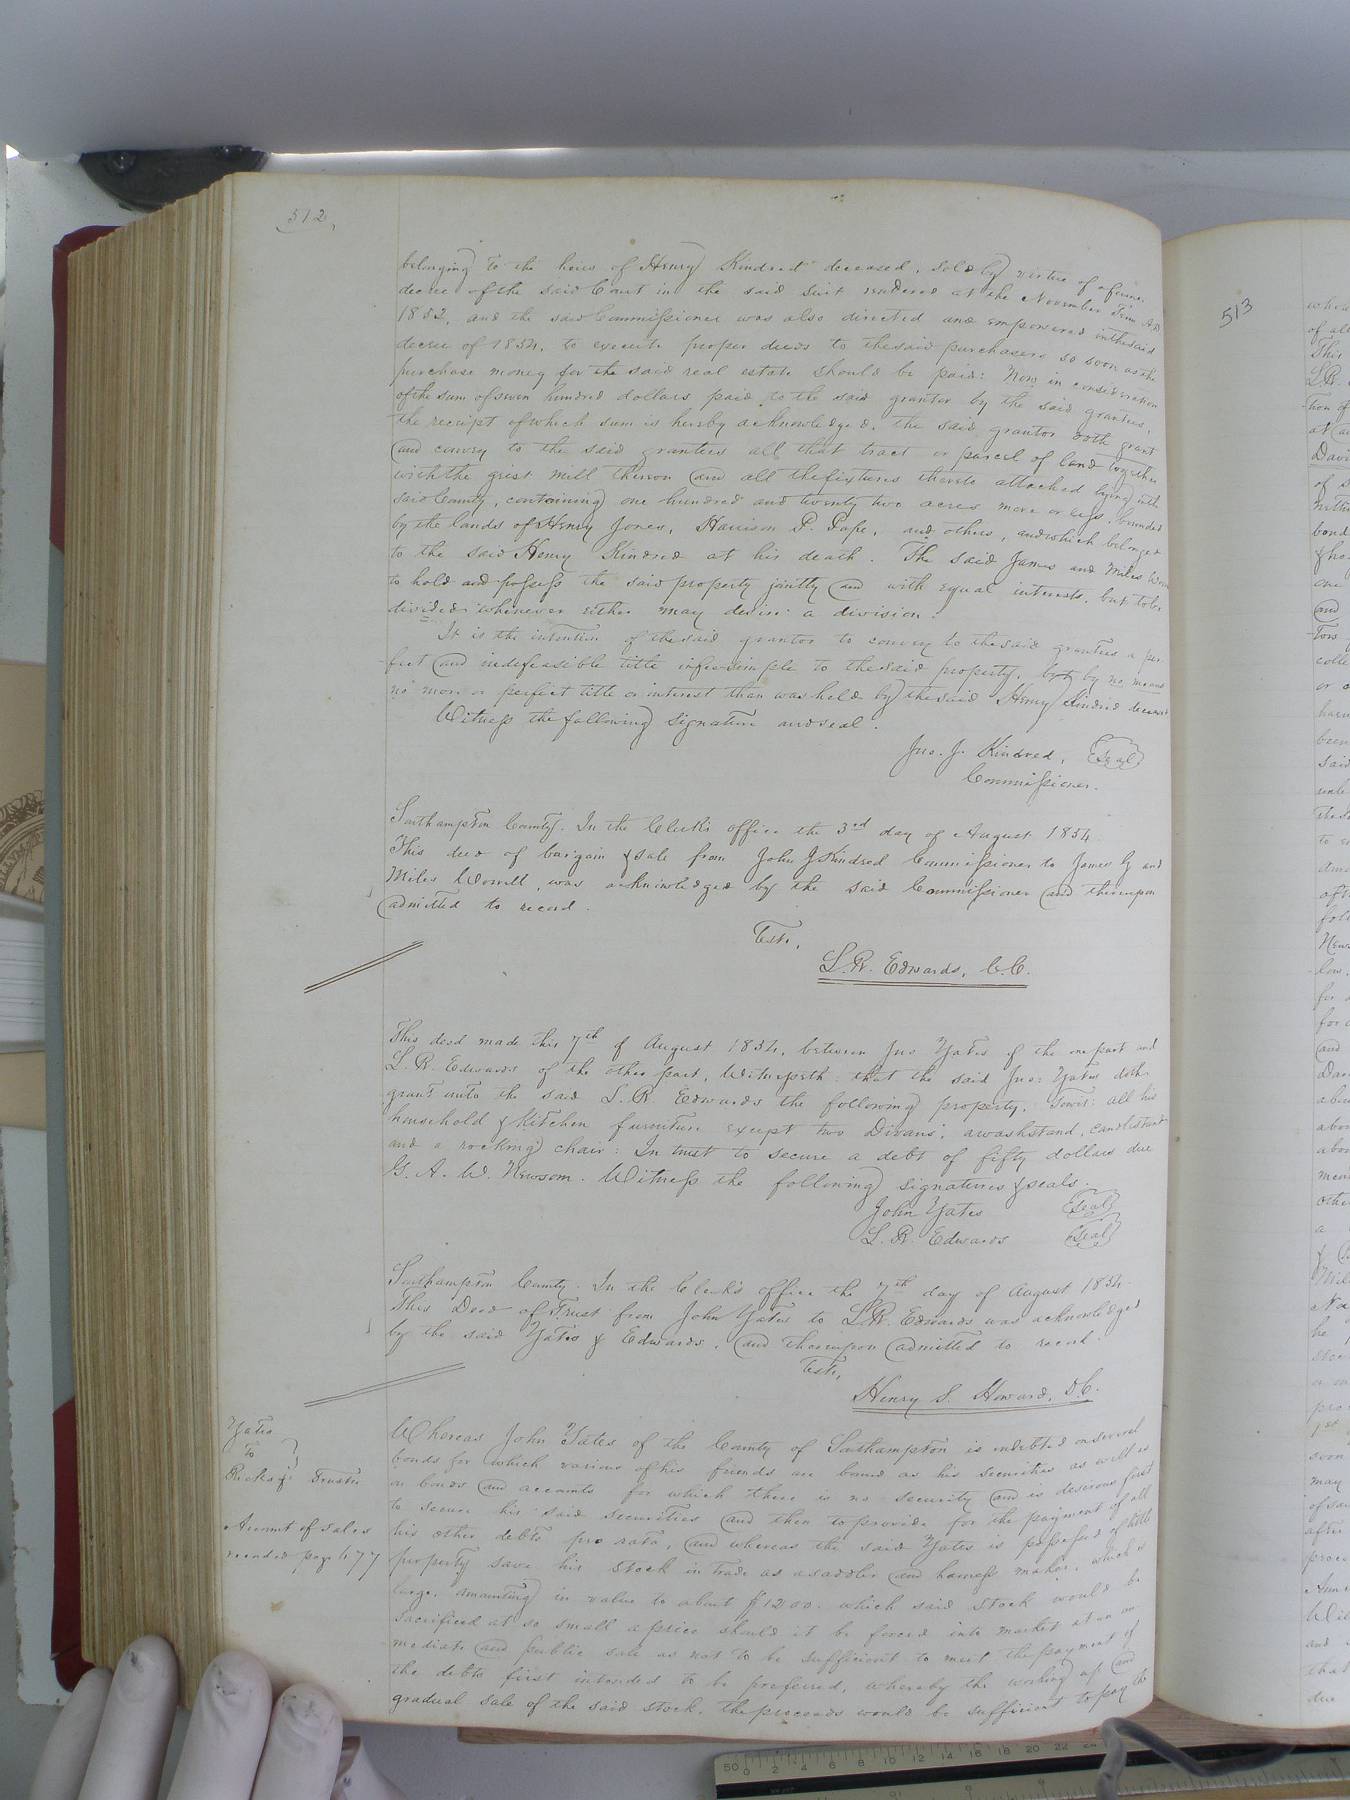 512,
belonging to the heirs of Henry Kindred deceased, sold by virtue of a former
decree of the said Court in the said suit rendered at the November Term A.D.
1853, and the said Commissioner was also directed and empowered in the said
decree of 1854, to execute proper deeds to the said purchasers so soon as the
purchase money for the said real estate should be paid: Now in consideration
of the sum of seven hundred dollars paid to the said grantor by the said grantees,
the receipt of which sum is hereby acknowledged, the said grantor doth grant
and convey to the said grantees all that tract or parcel of land together
with the grist mill thereon and all the fixtures thereto attached lying in the
said County, containing one hundred and twenty two acres more or less, bounded
by the lands of Henry Jones, Harrison P. Pope, and others, and which belonged
to the said Henry Kindred at his death. The said James and Miles Worrell
to hold and possess the said property jointly and with equal interests, but to be
divided whenever either may desire a division.
It is the intention of the said grantor to convey to the said grantees a per-
-fect and indefeasible title in fee simple to the said property, but by no means
no more or perfect title or interest than was held by the said Henry Kindred deceased
Witness the following signature and seal.
Jno. J. Kindred, Seal
Commissioner.
Southampton County. In the Clerk's office the 3rd day of August 1854
This deed of bargain & sale from John J Kindred Commissioner to James G and
Miles Worrell, was acknowledged by the said Commissioner and thereupon
admitted to record.
Teste,
L. R. Edwards, C.C.
This deed made this 7th of August 1854, between Jno Yates of the one part and
L. R. Edwards of the other part, Witnesseth: that the said Jno: Yates doth
grant unto the said L. R. Edwards the following property, Towit: all his
household & kitchen furniture except two Divans, a washstand, candlestand
and a rocking chair: In trust to secure a debt of fifty dollars due
G. A. W. Newsom. Witness the following signatures & seals.
John Yates Seal
L. R. Edwards Seal
Southampton County. In the Clerk's office the 7th day of August 1854
This Deed of Trust from John Yates to L. R. Edwards was acknowledged
by the said Yates & Edwards, and thereupon admitted to record.
Teste,
Henry S. Howard, D.C.
Yates
To
Ricks Trustee
Account of sales
recorded page 477
Whereas John Yates of the County of Southampton is indebted on several
bonds for which various of his friends are bound as his securities as well as
on bonds and accounts for which there is no security and is desirous first
to secure his said securities and then to provide for the payment of all
his other debts pro rata, and whereas the said Yates is possessed of little
property save his stock in trade as a saddler and harness maker, which is
large, amounting in value to about $1200. which said stock would be
sacrificed at so small a price should it be forced into market at an im-
-mediate and public sale as not to be sufficient to meet the payment of
the debts first intended to be preferred, whereby the working up and
gradual sale of the said stock, the proceeds would be sufficient to pay the
513